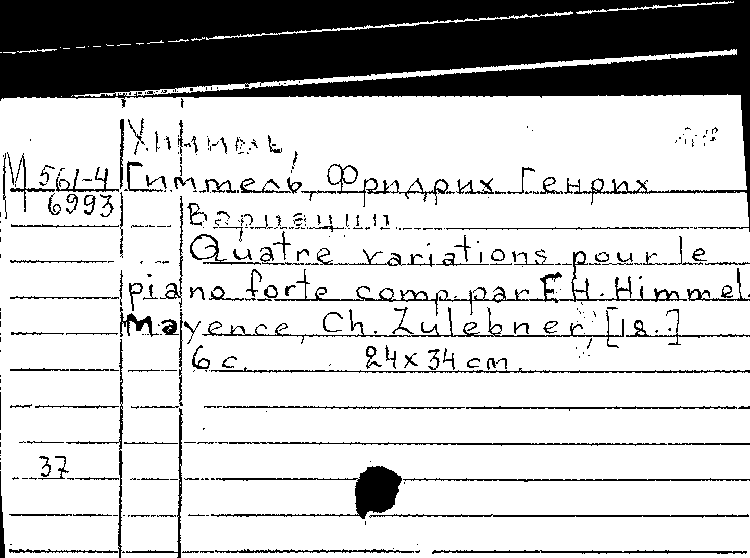 Химмель,
М 561-4 Гиммель, Фридрих Генрих
6993
Вариации
Quatre variations pour le
piano forte comp. par F. H. Himmel.
Mayence, Ch. Zulebner, [18..]
6 с. 24x34 cm.
37